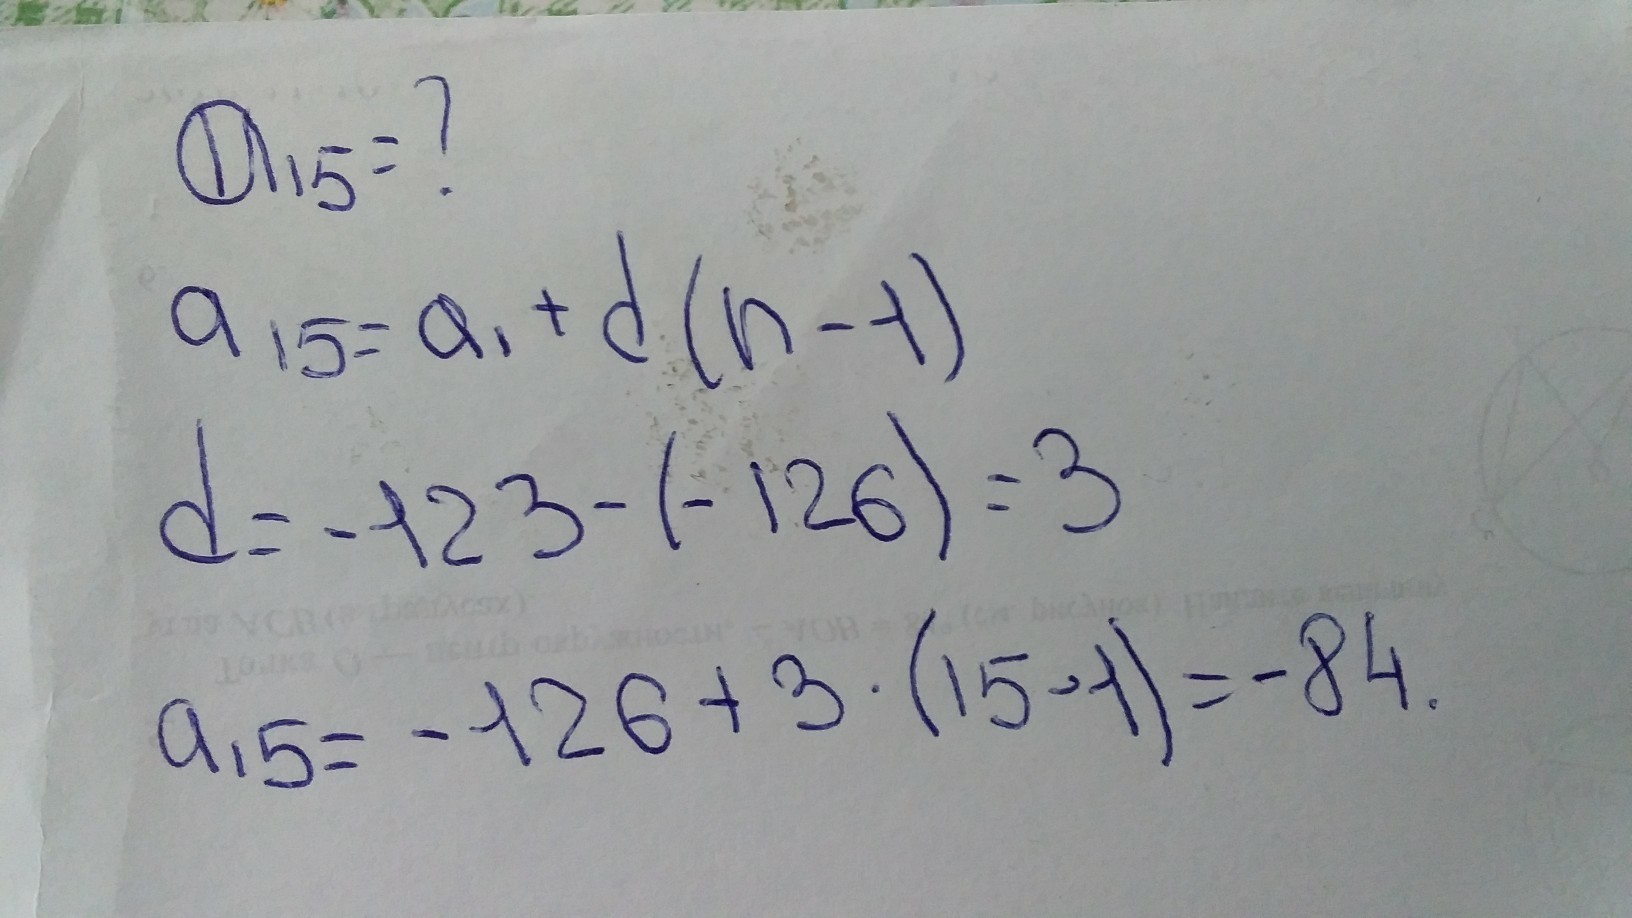 a15=?
a15=a1+d(n-1)
d=-123-(-126)=3
a15=-126+3·(15-1)=-84.